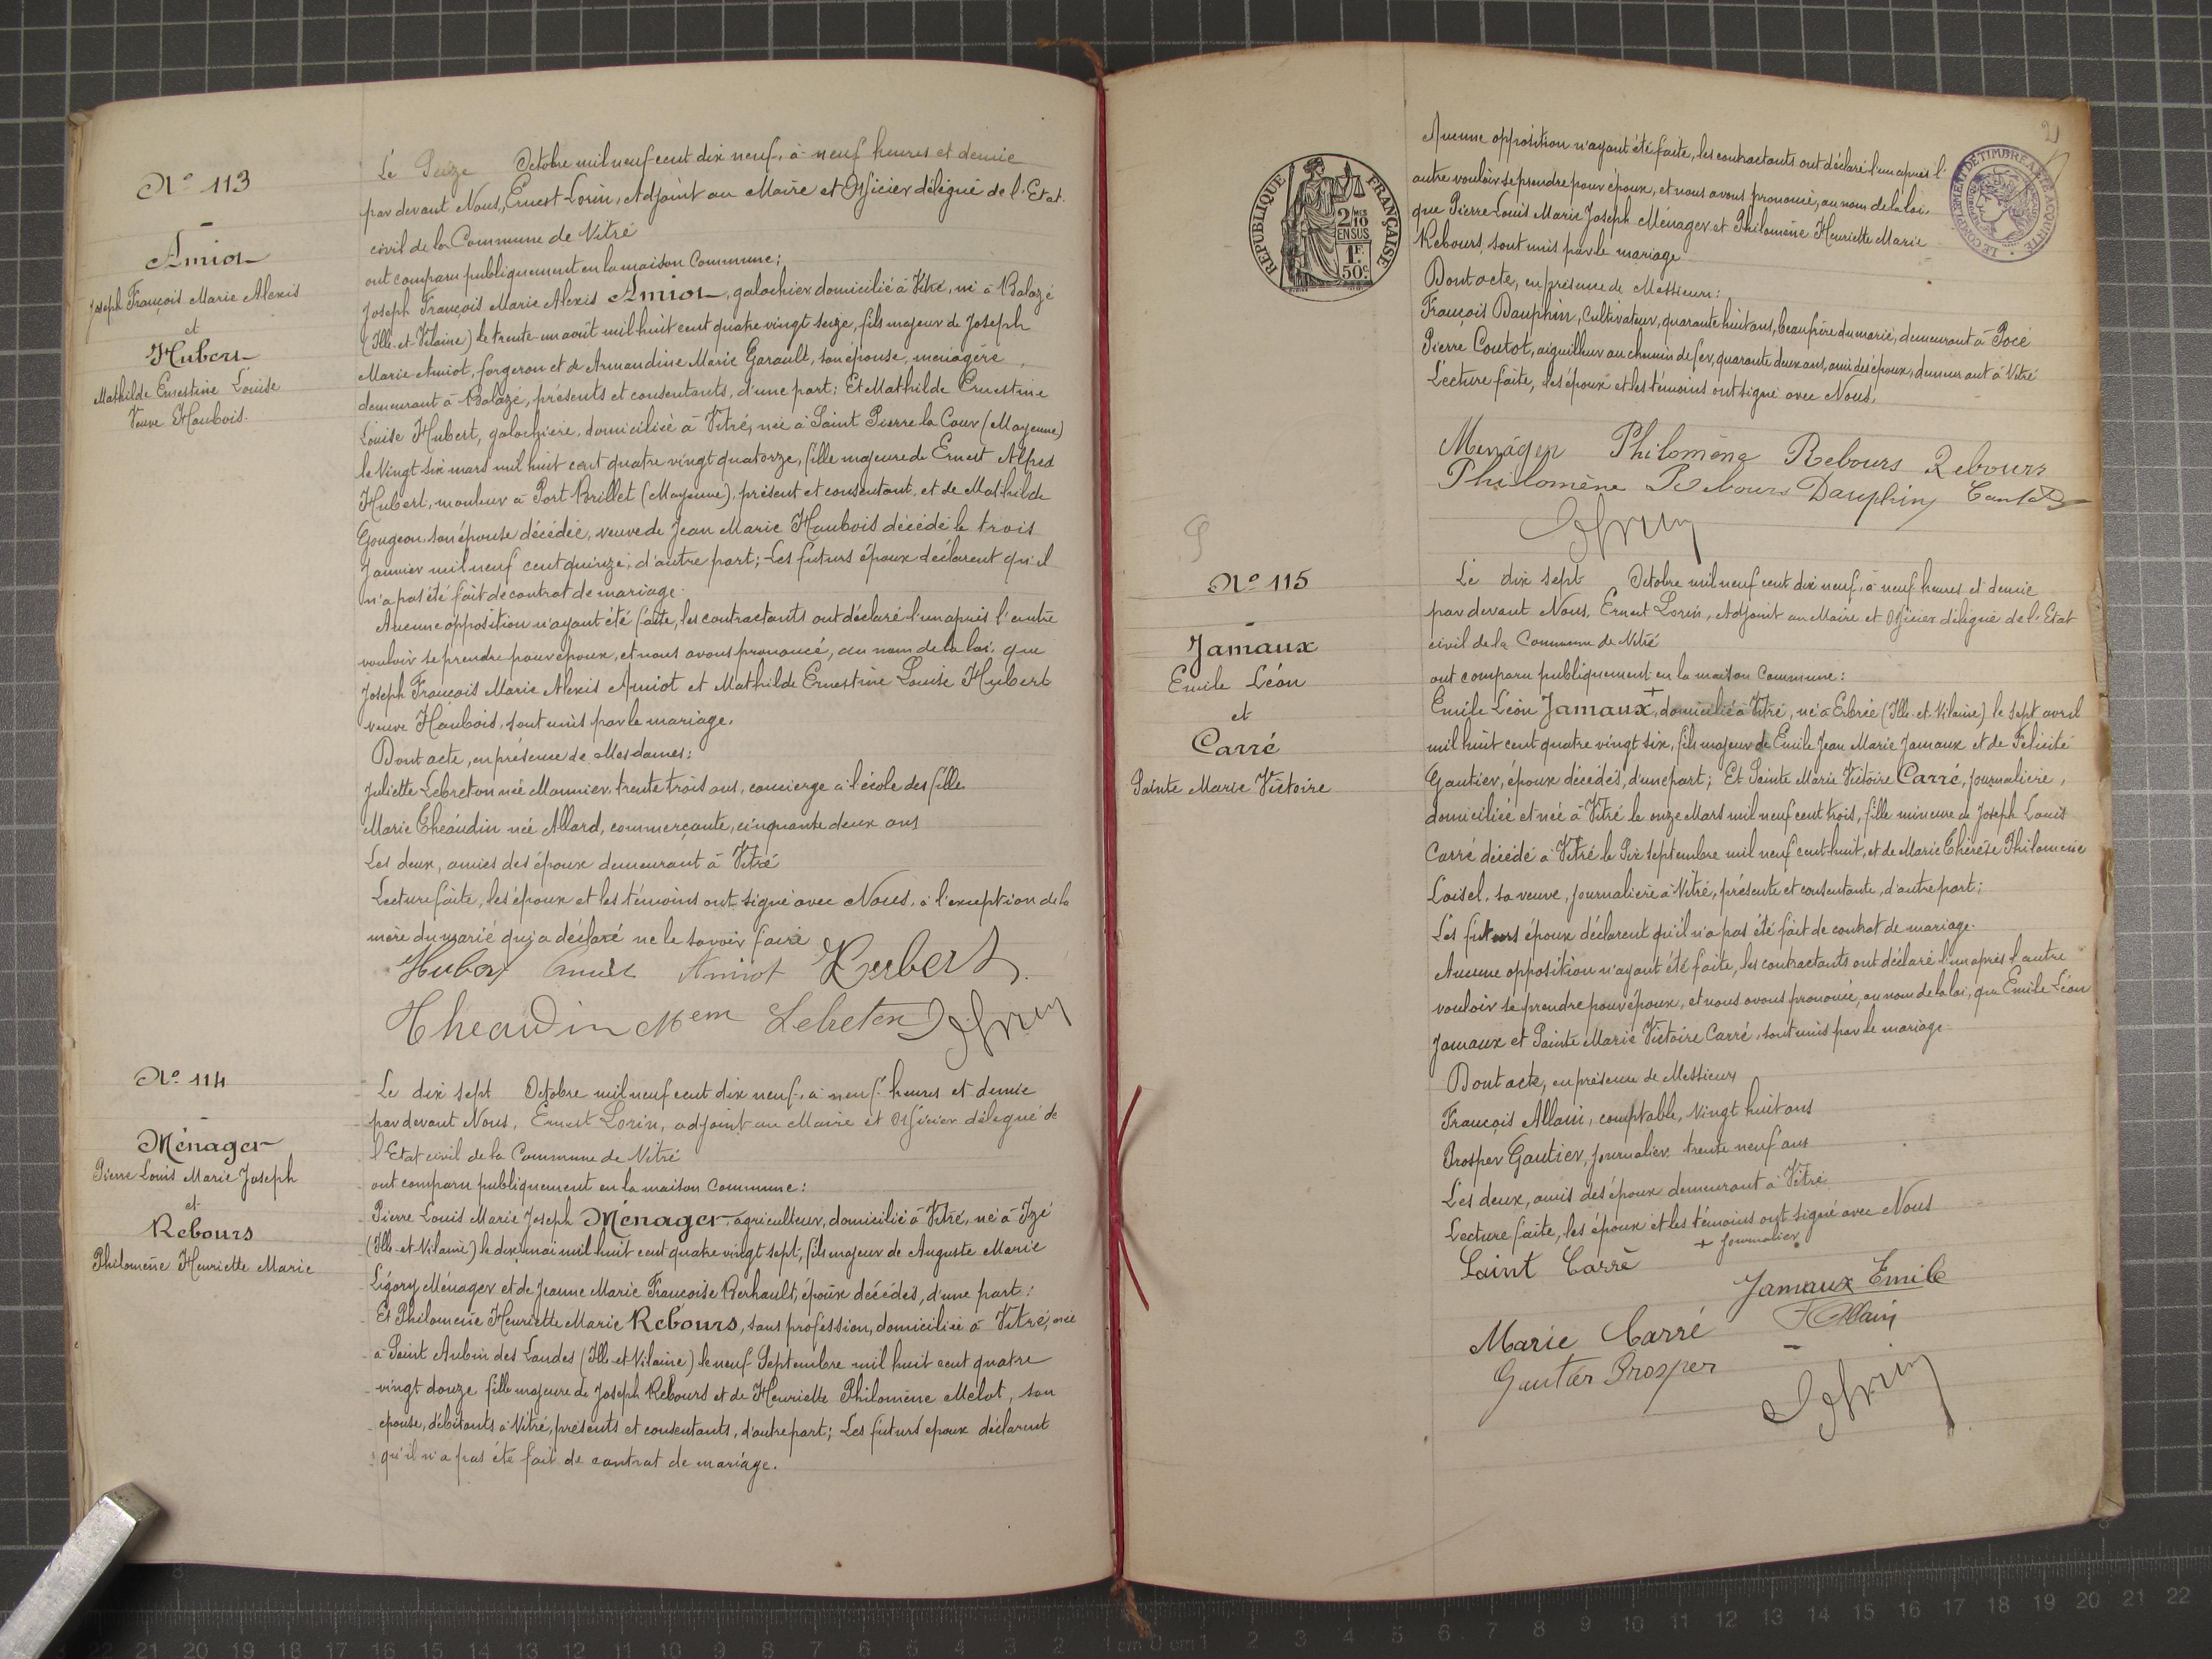 N° 113
Amiot
Joseph François Marie Alexis
et
Hubert
Mathilde Ernestine Louise
Veuve Haubois.
Le Seize Octobre mil neuf cent dix neuf, à neuf heures et demie
par devant Nous, Ernest Lorin, Adjoint au Maire et Officier délégué de l'Etat
civil de la Commune de Vitré
ont comparu publiquement en la maison Commune;
Joseph François Marie Alexis Amiot, galochier domicilié à Vitré, né à Balazé
(Ille-et-Vilaine) le trente-un août mil huit cent quatre vingt seize, fils majeur de Joseph
Marie Amiot, forgeron et de Armandine Marie Garault, son épouse, ménagère,
demeurant à Balazé, présents et consentants, d'une part; Et Mathilde Ernestine
Louise Hubert, galochière, domiciliée à Vitré, née à Saint Pierre la Cour (Mayenne)
le Vingt six mars mil huit cent quatre vingt quatorze, fille majeure de Ernest Alfred
Hubert, mouleur à Port Brillet (Mayenne), présent et consentant, et de Mathilde
Gougeon, son épouse décédée, veuve de Jean Marie Haubois décédé le trois
Janvier mil neuf cent quinze, d'autre part; Les futurs époux déclarent qu'il
n'a pas été fait de contrat de mariage.
Aucune opposition n'ayant été faite, les contractants ont déclaré l'un après l'autre
vouloir se prendre pour époux, et nous avons prononcé, au nom de la loi, que
Joseph François Marie Alexis Amiot et Mathilde Ernestine Louise Hubert
veuve Haubois, sont unis par le mariage.
Dont acte, en présence de Mesdames:
Juliette Lebreton née Monnier, trente trois ans, concierge à l'école des fille
Marie Théaudin née Allard, commerçante, cinquante deux ans
Les deux, amies des époux demeurant à Vitré
Lecture faite, les époux et les témoins ont signé avec Nous, à l'exception de la
mère du marié qui a déclaré ne le savoir faire
Hubert Amiot Hubert
Theaudin Mem Lebreton
N° 114
Ménager
Pierre Louis Marie Joseph
et
Rebours
Philomène Henriette Marie
Le dix sept Octobre mil neuf cent dix neuf, à neuf heures et demie
par devant Nous, Ernest Lorin, adjoint au Maire et Officier délégué de
l'Etat civil de la Commune de Vitré
ont comparu publiquement en la maison Commune:
Pierre Louis Marie Joseph Ménager, agriculteur, domicilié à Vitré, né à Izé
(Ille-et-Vilaine) le dix mai mil huit cent quatre vingt sept, fils majeur de Auguste Marie
Ligory Ménager et de Jeanne Marie Françoise Berhault, époux décédés, d'une part:
Et Philomène Henriette Marie Rebours, sans profession, domiciliée à Vitré, née
à Saint Aubin des Landes (Ille-et-Vilaine) le neuf Septembre mil huit cent quatre
vingt douze fille majeure de Joseph Rebours et de Henriette Philomène Melot, son
épouse, débitants à Vitré, présents et consentants, d'autre part; Les futurs époux déclarent
qu'il n'a pas été fait de contrat de mariage.
REPUBLIQUE FRANÇAISE
2/10 MES
EN SUS
1F.
50c
LE COMPLEMENT DE TIMBRE A ÉTÉ ACQUITTÉ
Aucune opposition n'ayant été faite, les contractants ont déclaré l'un après l'
autre vouloir se prendre pour époux, et nous avons prononcé, au nom de la loi,
que Pierre Louis Marie Joseph Ménager et Philomène Henriette Marie
Rebours, sont unis par le mariage
Dont acte, en présence de Messieurs:
François Dauphin, Cultivateur, quarante huit ans, beau frère du marié, demeurant à Pocé
Pierre Coutot, aiguilleur au chemin de fer, quarante deux ans, ami des époux, demeurant à Vitré
Lecture faite, les époux et les témoins ont signé avec Nous,
Menager Philomène Rebours Rebours
Philomène Rebours Dauphin
N° 115
Jamaux
Emile Léon
et
Carré
Sainte Marie Victoire
Le dix sept Octobre mil neuf cent dix neuf, à neuf heures et demie
par devant Nous, Ernest Lorin, Adjoint au Maire et Officier délégué de l'Etat
civil de la Commune de Vitré
ont comparu publiquement en la maison Commune:
Emile Léon Jamaux +, domicilié à Vitré, né à Erbrée (Ille-et-Vilaine) le sept avril
mil huit cent quatre vingt six, fils majeur de Emile Jean Marie Jamaux et de Félicité
Gautier, époux décédés, d'une part; Et Sainte Marie Victoire Carré, journalière,
domiciliée et née à Vitré le onze Mars mil neuf cent trois, fille mineure de Joseph Louis
Carré décédé à Vitré le Six septembre mil neuf cent huit, et de Marie Thérèse Philomène
Loisel, sa veuve, journalière à Vitré, présente et consentante, d'autre part;
Les futurs époux déclarent qu'il n'a pas été fait de contrat de mariage.
Aucune opposition n'ayant été faite, les contractants ont déclaré l'un après l'autre
vouloir se prendre pour époux, et nous avons prononcé, au nom de la loi, que Emile Léon
Jamaux et Sainte Marie Victoire Carré, sont unis par le mariage
Dont acte, en présence de Messieurs
François Allain, comptable, vingt huit ans
Prosper Gautier, journalier, trente neuf ans
Les deux, amis des époux demeurant à Vitré
Lecture faite, les époux et les témoins ont signé avec Nous
+ journalier
Saint Carré
Jamaux Emile
Marie Carré
F Allain
Gautier Prosper
22 21 20 19 18 17 16 15 14 13 12 11 10 9 8 7 6 5 4 3 2 1 cm 0 cm 1 2 3 4 5 6 7 8 9 10 11 12 13 14 15 16 17 18 19 20 21 22